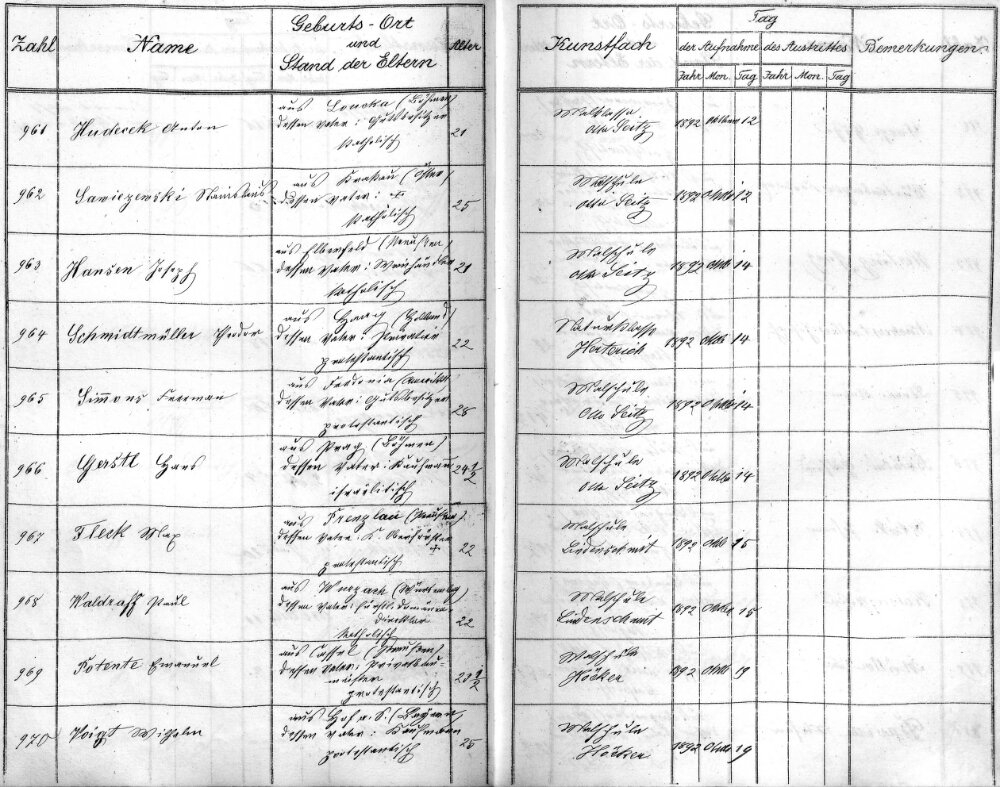 Zahl Name Geburts-Ort und Stand der Eltern Alter Kunstfach Tag der Aufnahme des Austrittes Bemerkungen
Fahr Mon. Tag Fahr Mon. Tag
961 Hudecek Anton aus Loucka (Böhmen) 21 Malklasse 1892 Oktober 12
dessen Vater: Gutsbesitzer Otto Seitz
katholisch
962 Sawiczewski Stanislaus aus Krakau (Öster) 25 Malschule 1892 Oktob 12
dessen Vater: Otto Seitz
katholisch
963 Hansen Joseph aus Elberfeld (Preußen) 21 Malschule 1892 Oktob 14
dessen Vater: Weinhändler Otto Seitz
katholisch
964 Schmidtmüller Theodor aus Haag (Holland) 22 Naturklasse 1892 Oktob 14
dessen Vater: Privatier Herterich
protestantisch
965 Simmons Freeman aus Fredonia (Amerika) 28 Malschule 1892 Oktob 14
dessen Vater: Gutsbesitzer Otto Seitz
protestantisch
966 Gerstl Hans aus Prag (Böhmen) 24 1/2 Malschule 1892 Oktob 14
dessen Vater: Kaufmann Otto Seitz
israelitisch
967 Fleck Max aus Prenzlau (Preußen) 22 Malschule 1892 Oktb 15
dessen Vater: K. Oberförster † Lindenschmit
protestantisch
968 Waldraff Paul aus Wurzach (Württemberg) 22 Malschule 1892 Oktob 15
dessen Vater: fürstl. Domänen- Lindenschmit
direktor
katholisch
969 Potente Emanuel aus Cassel (Preußen) 23 1/2 Malschule 1892 Oktb 19
dessen Vater: Privatbau- Höcker
meister
protestantisch
970 Voigt Wilhelm aus Hof a. S. (Bayern) 25 Malschule 1892 Oktb 19
dessen Vater: Kaufmann Höcker
protestantisch